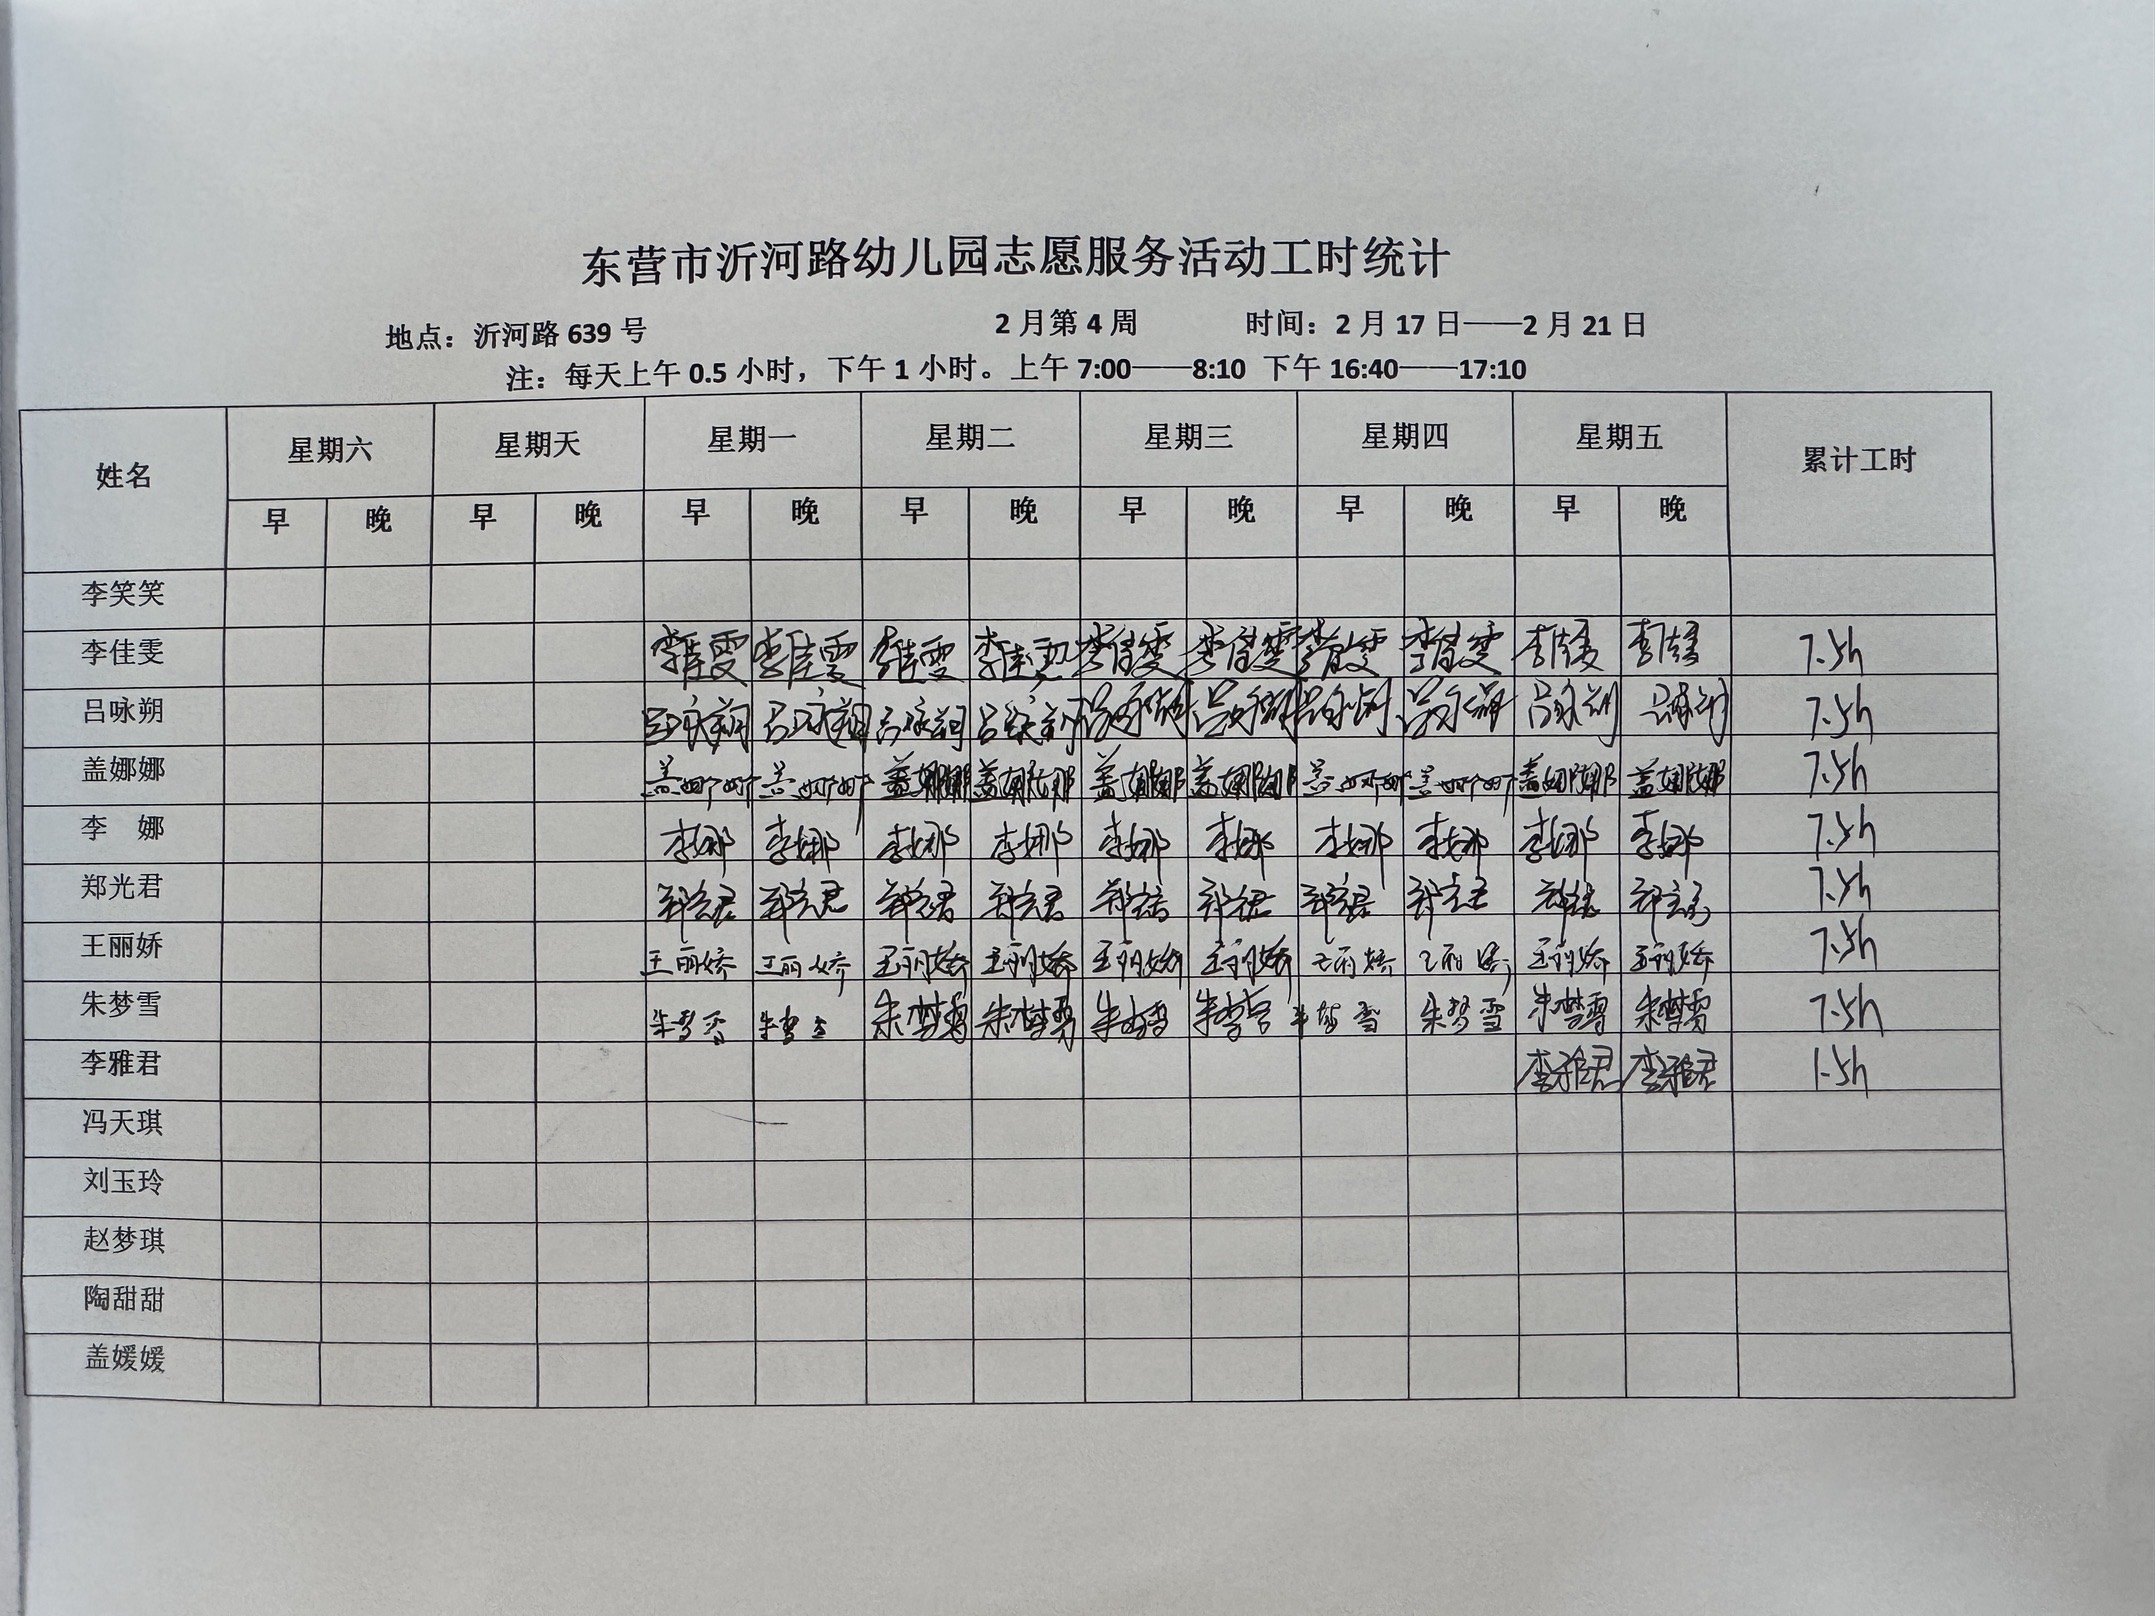 东营市沂河路幼儿园志愿服务活动工时统计
地点：沂河路 639 号 2 月第 4 周 时间：2 月 17 日——2 月 21 日
注：每天上午 0.5 小时，下午 1 小时。上午 7:00——8:10 下午 16:40——17:10
姓名 星期六 星期天 星期一 星期二 星期三 星期四 星期五 累计工时
早 晚 早 晚 早 晚 早 晚 早 晚 早 晚 早 晚
李笑笑
李佳雯 李佳雯 李佳雯 李佳雯 李佳雯 李佳雯 李佳雯 李佳雯 李佳雯 李佳雯 李佳雯 7.5h
吕咏朔 吕咏朔 吕咏朔 吕咏朔 吕咏朔 吕咏朔 吕咏朔 吕咏朔 吕咏朔 吕咏朔 吕咏朔 7.5h
盖娜娜 盖娜娜 盖娜娜 盖娜娜 盖娜娜 盖娜娜 盖娜娜 盖娜娜 盖娜娜 盖娜娜 盖娜娜 7.5h
李 娜 李娜 李娜 李娜 李娜 李娜 李娜 李娜 李娜 李娜 李娜 7.5h
郑光君 郑光君 郑光君 郑光君 郑光君 郑光君 郑光君 郑光君 郑光君 郑光君 郑光君 7.5h
王丽娇 王丽娇 王丽娇 王丽娇 王丽娇 王丽娇 王丽娇 王丽娇 王丽娇 王丽娇 王丽娇 7.5h
朱梦雪 朱梦雪 朱梦雪 朱梦雪 朱梦雪 朱梦雪 朱梦雪 朱梦雪 朱梦雪 朱梦雪 朱梦雪 7.5h
李雅君 李雅君 李雅君 1.5h
冯天琪
刘玉玲
赵梦琪
陶甜甜
盖媛媛